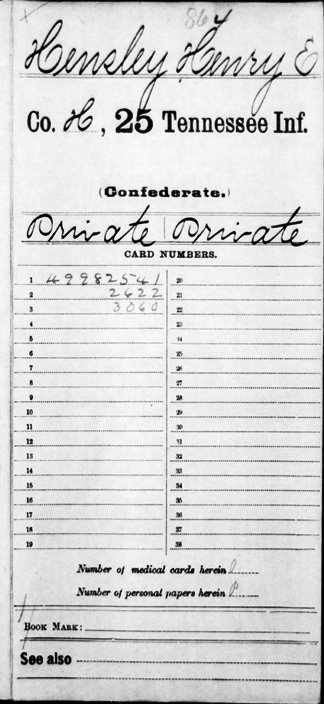 864
Hensley, Henry E
Co. H, 25 Tennessee Inf.
(Confederate.)
Private | Private
CARD NUMBERS.
1 49982541 20
2 2622 21
3 3060 22
4 23
5 24
6 25
7 26
8 27
9 28
10 29
11 30
12 31
13 32
14 33
15 34
16 35
17 36
18 37
19 38
Number of medical cards herein 0
Number of personal papers herein 0
BOOK MARK:
See also